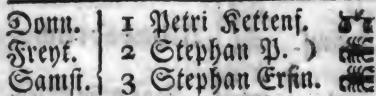 Donn. 1 Petri Kettenf.
Freyt. 2 Stephan P. )
Samst. 3 Stephan Erfin.